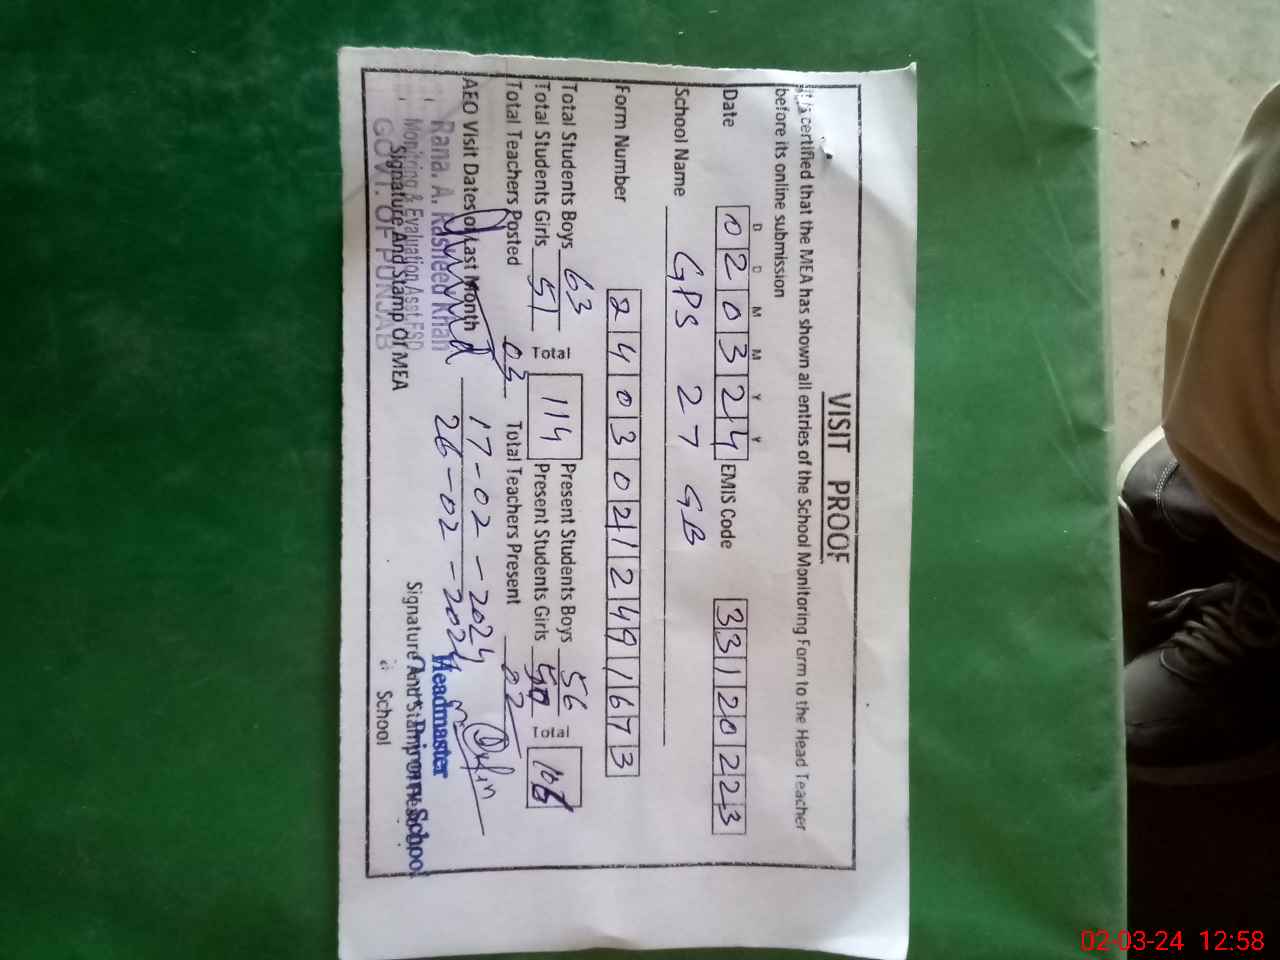 VISIT PROOF
It is certified that the MEA has shown all entries of the School Monitoring Form to the Head Teacher
before its online submission
D D M M Y Y
Date 020324 EMIS Code 33120223
School Name GPS 27 GB
Form Number 24030212491673
Total Students Boys 63 Total 114 Present Students Boys 56 Total
Total Students Girls 51 Present Students Girls 50
Total Teachers Posted 03 Total Teachers Present 02
AEO Visit Dates of Last Month 17-02-2024
26-02-2024
Rana. A. Rasheed Khan
Monitring & Evaluation Asst.
GOVT. OF PUNJAB
Signature And Stamp Of MEA
Headmaster
School
Signature And Stamp
School
02-03-24 12:58